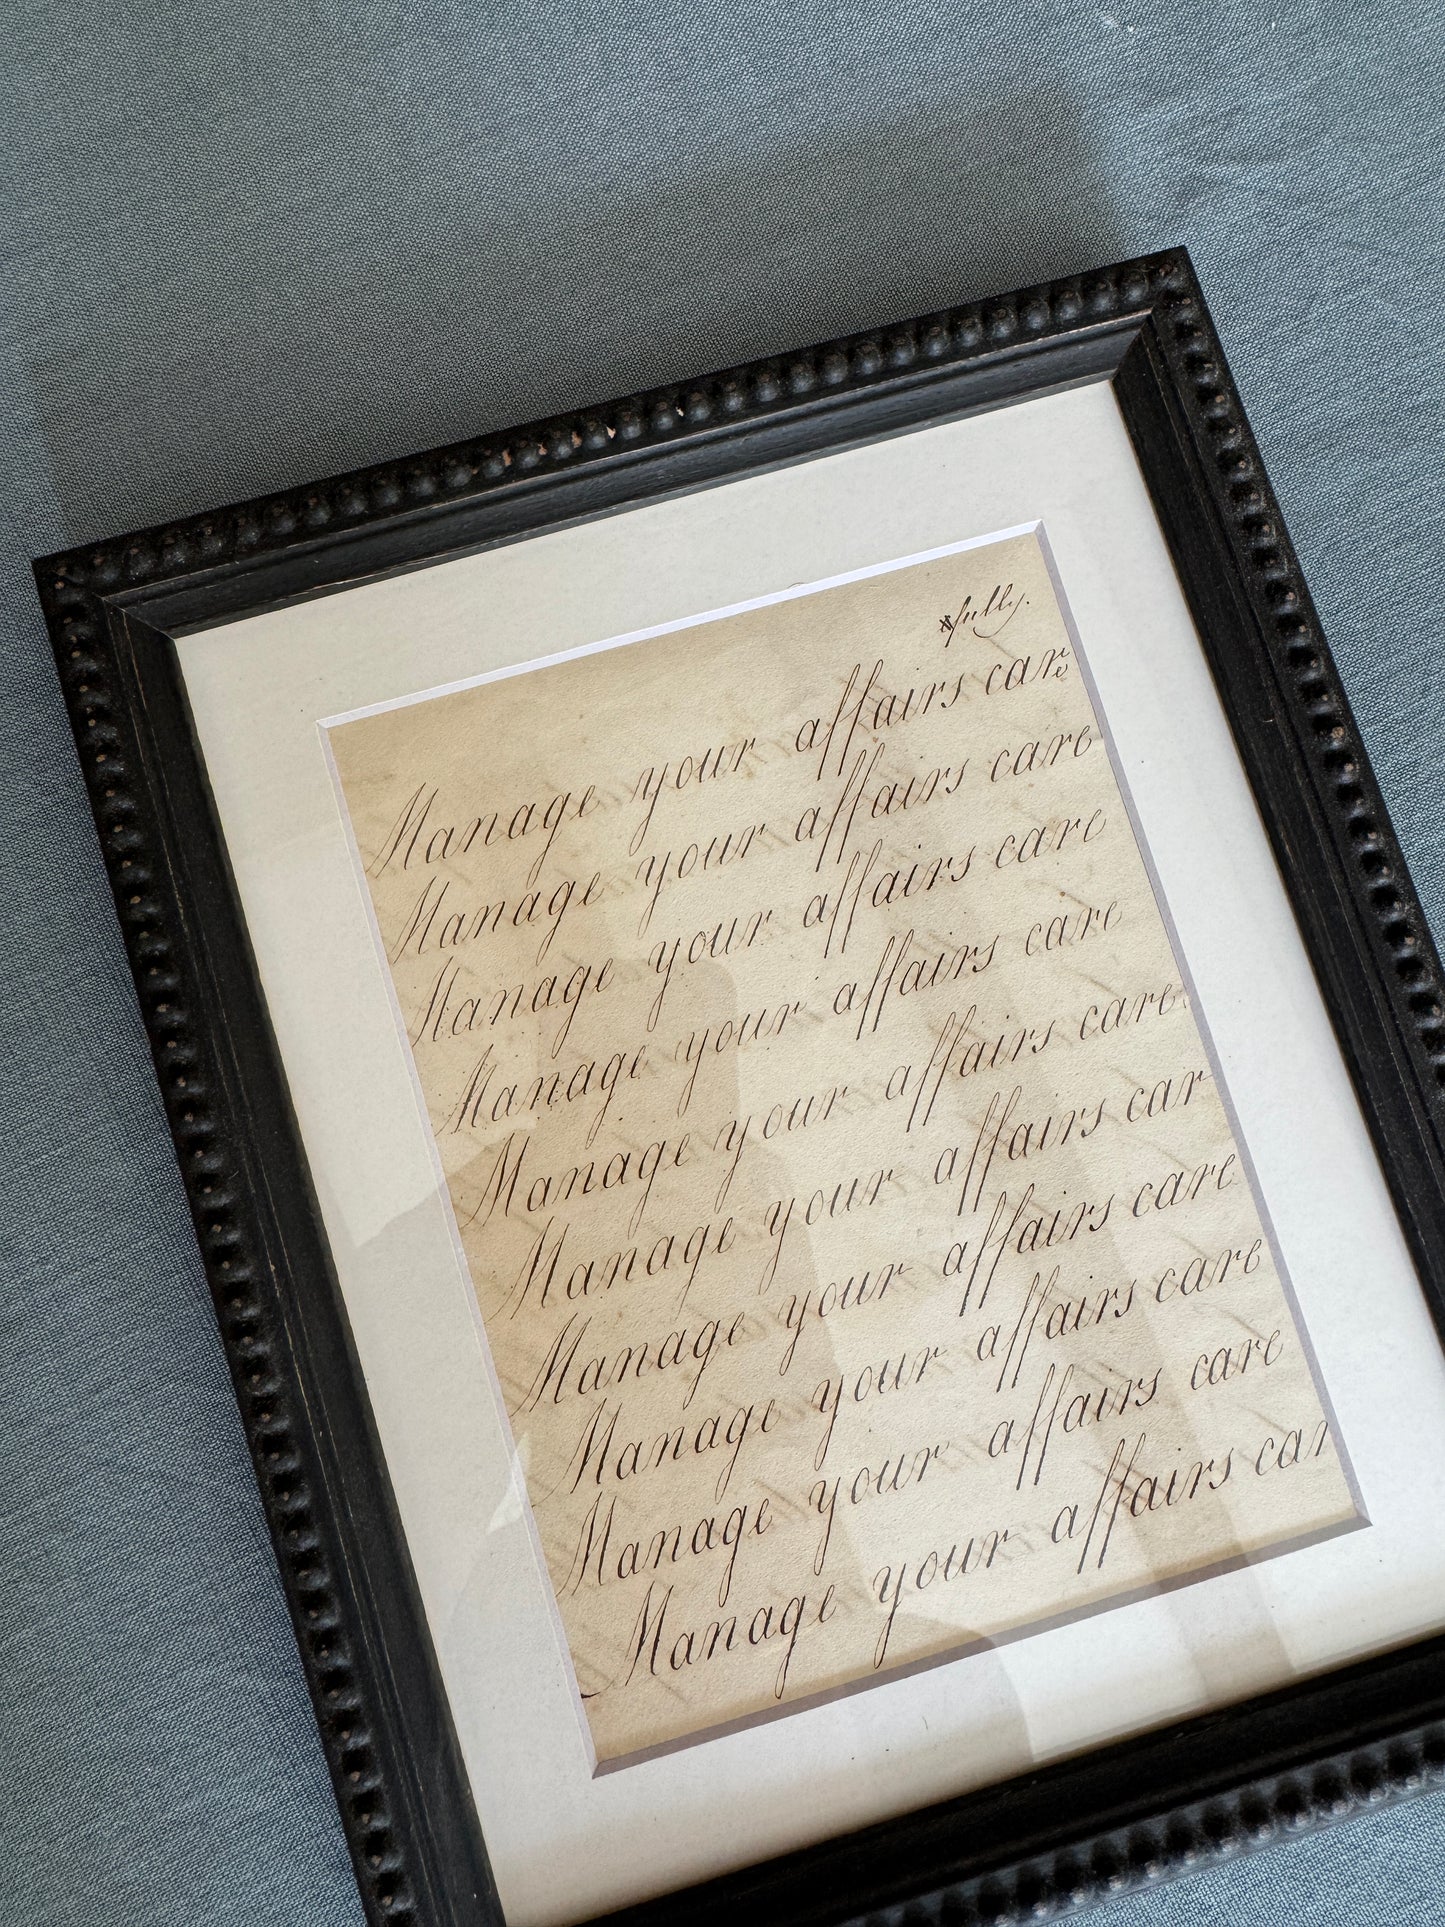 fully.
Manage your affairs care
Manage your affairs care
Manage your affairs care
Manage your affairs care
Manage your affairs care
Manage your affairs car
Manage your affairs care
Manage your affairs care
Manage your affairs care
Manage your affairs car